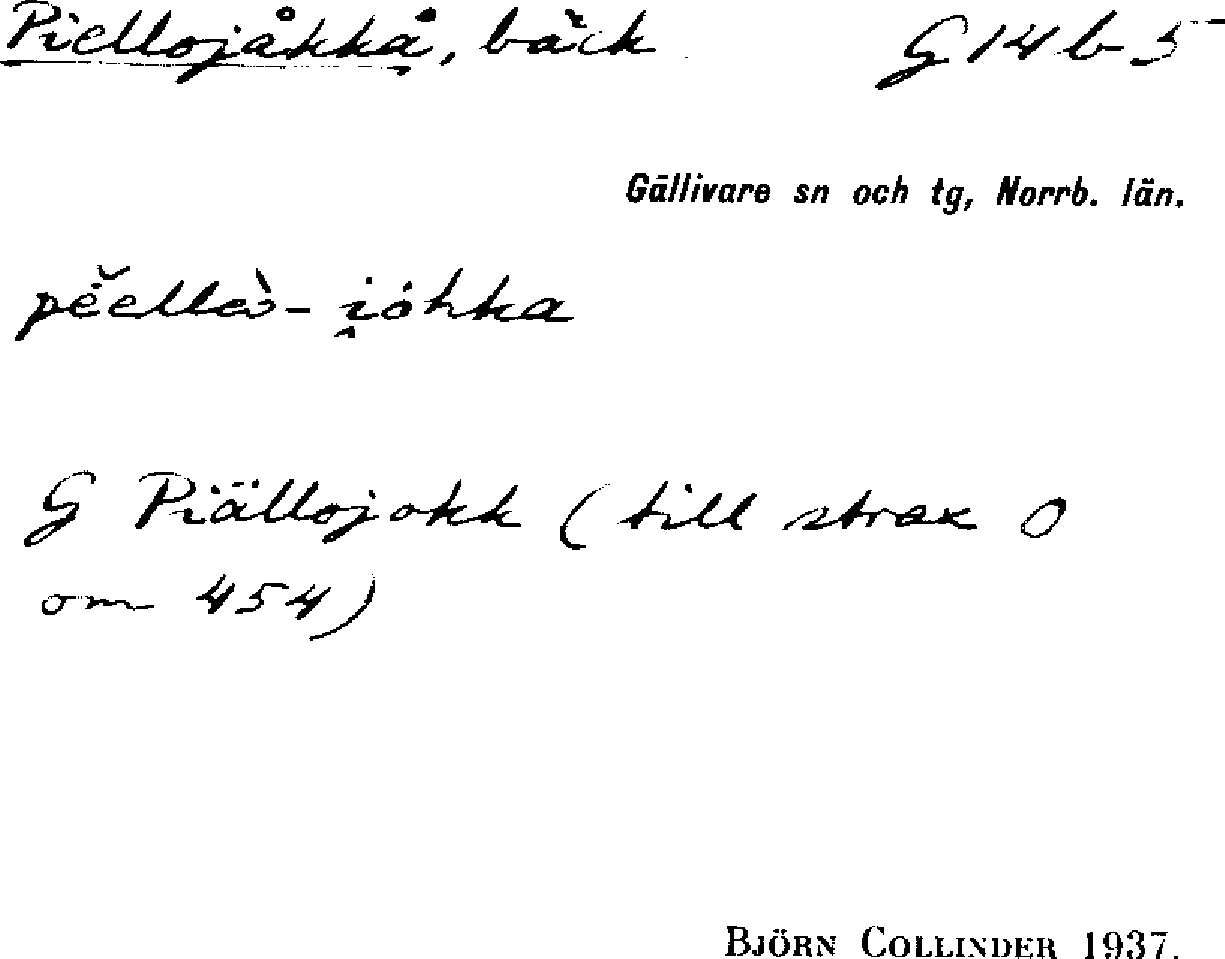 Piellojåkkå, bäck G 14 b 5
Gällivare sn och tg, Norrb. län.
pĕellɷ̀- i̯ȯhka
G Piällojokk (till strax O
om 454)
BJÖRN COLLINDER 1937.